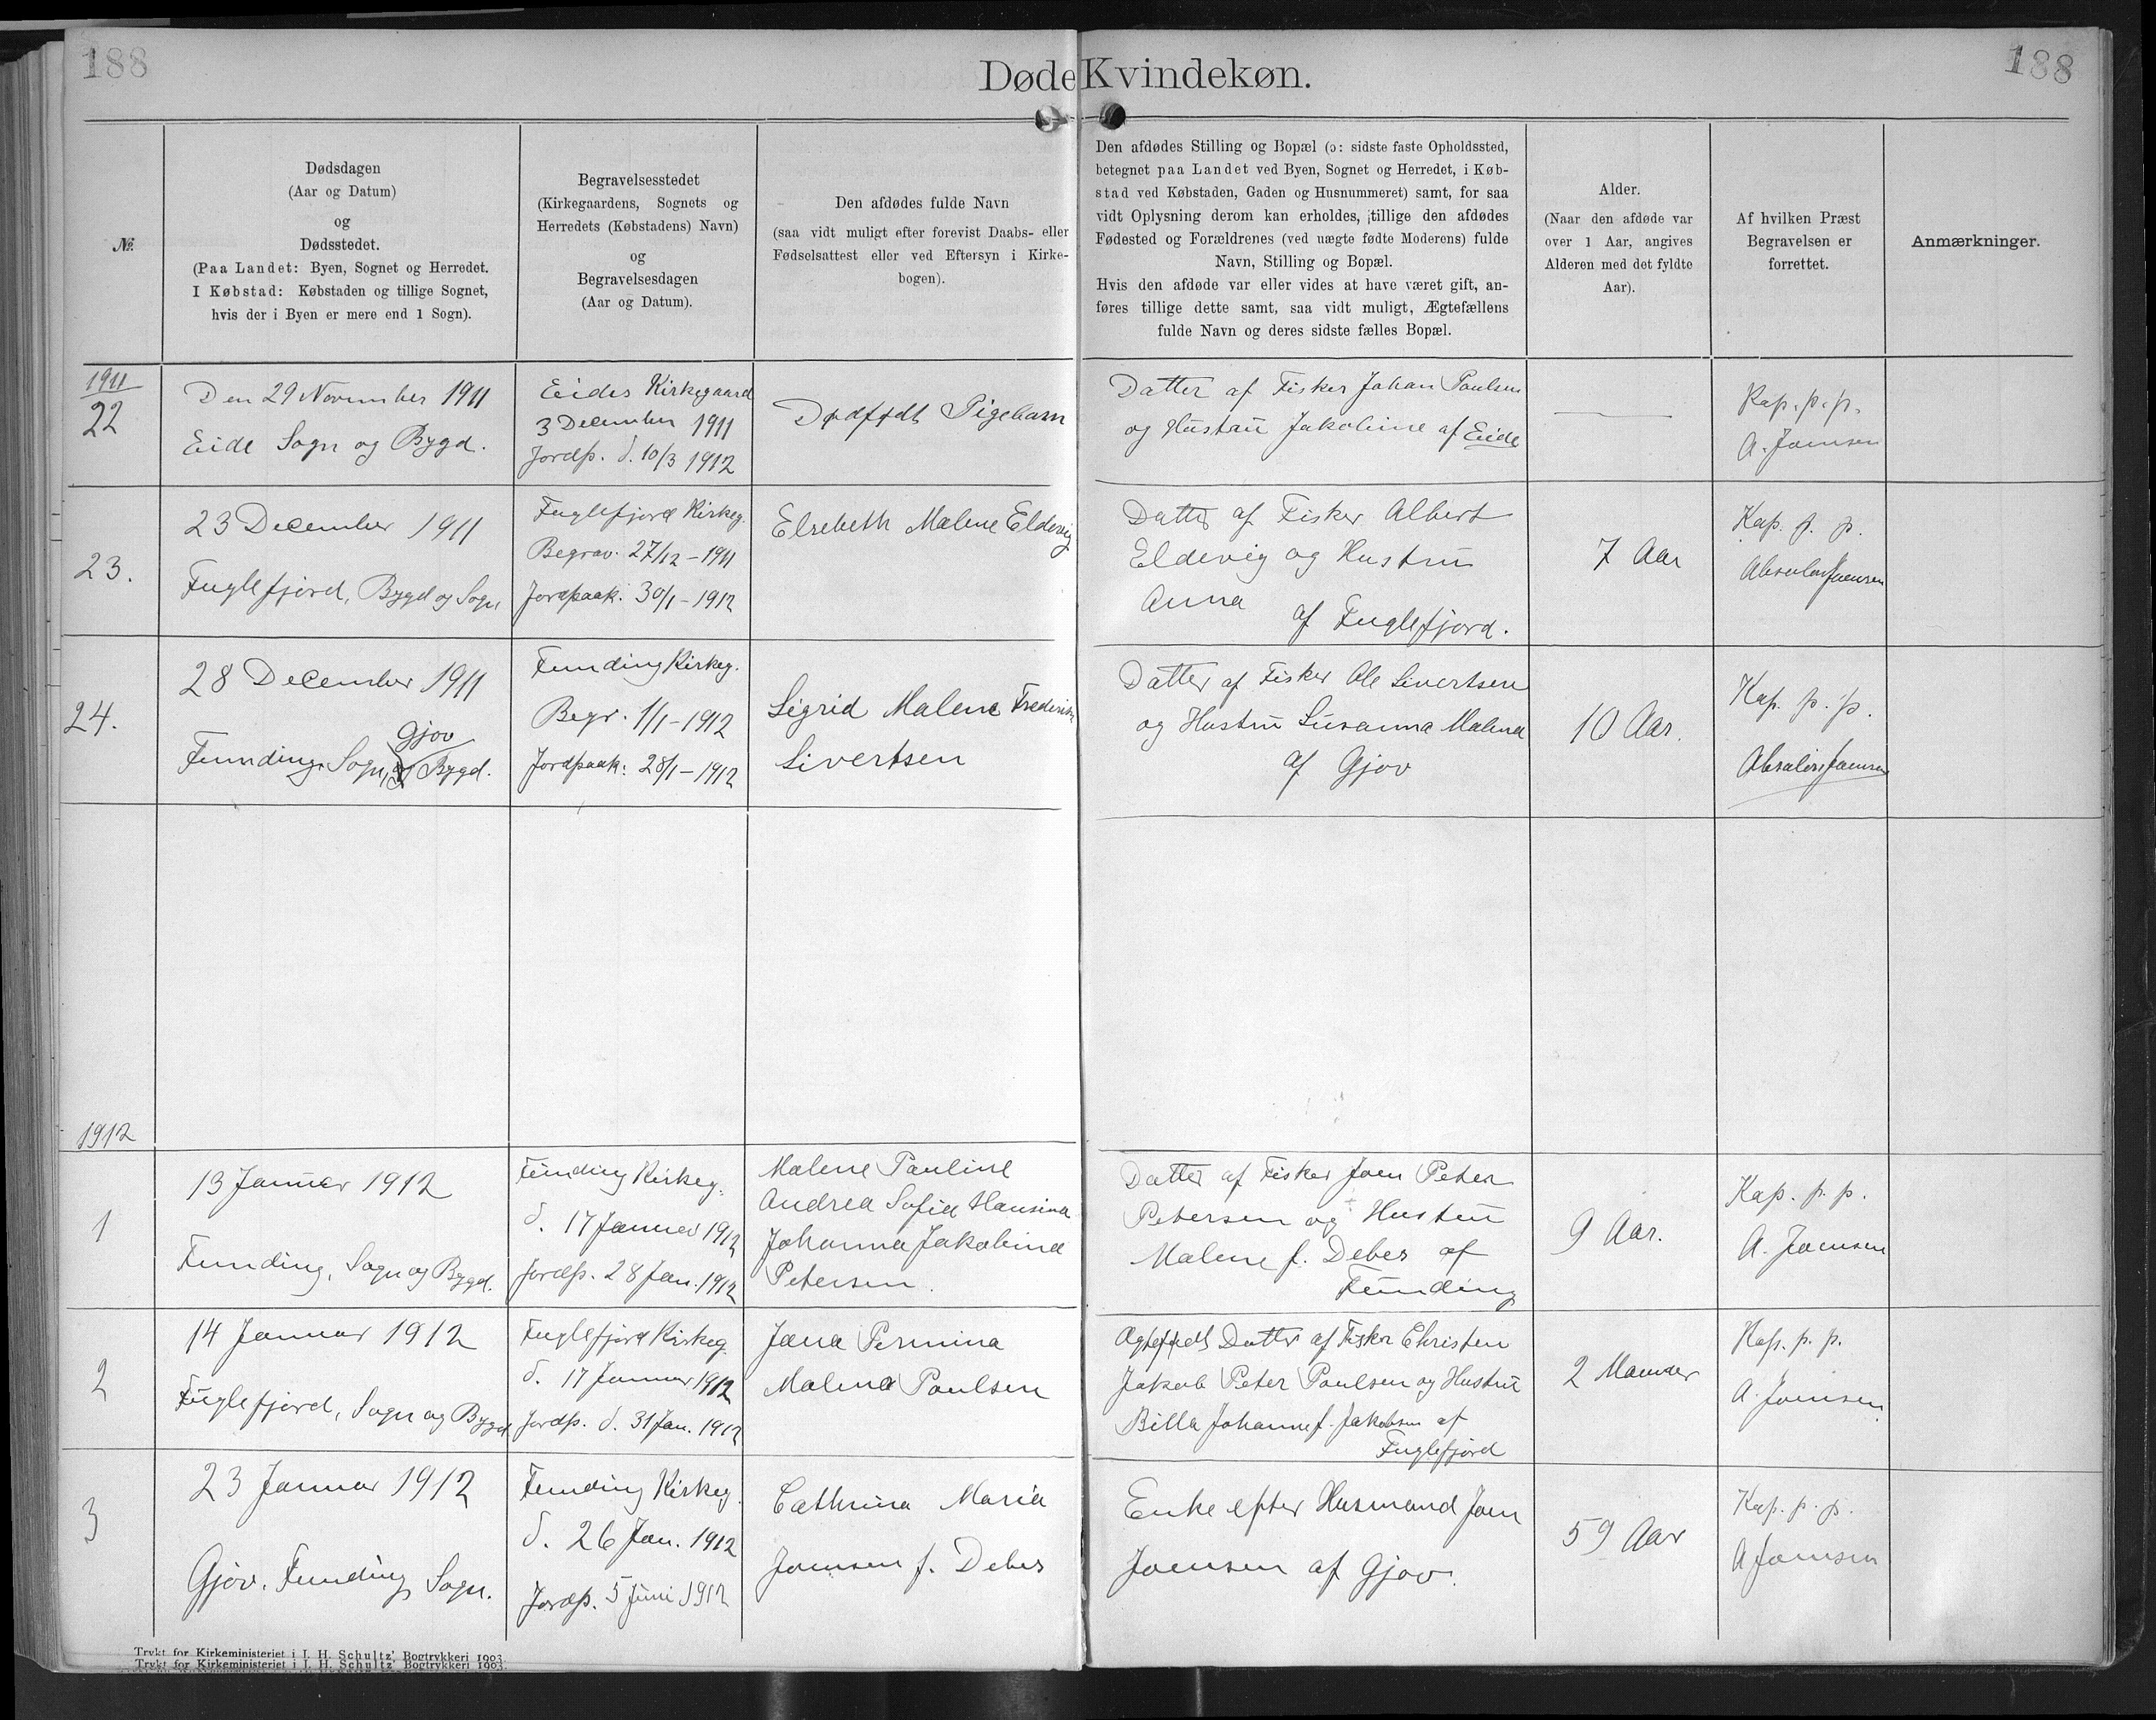 188
188
Døde Kvindekøn.
№.
Dødsdagen
(Aar og Datum)
og
Dødsstedet.
(Paa Landet: Byen, Sognet og Herredet.
I Købstad: Købstaden og tillige Sognet,
hvis der i Byen er mere end 1 Sogn).
Begravelsesstedet
(Kirkegaardens, Sognets og
Herredets (Købstadens) Navn)
og
Begravelsesdagen
(Aar og Datum).
Den afdødes fulde Navn
(saa vidt muligt efter forevist Daabs- eller
Fødselsattest eller ved Eftersyn i Kirke-
bogen).
Den afdødes Stilling og Bopæl (ɔ: sidste faste Opholdssted,
betegnet paa Landet ved Byen, Sognet og Herredet, i Køb-
stad ved Købstaden, Gaden og Husnummeret) samt, for saa
vidt Oplysning derom kan erholdes, tillige den afdødes
Fødested og Forældrenes (ved uægte fødte Moderens) fulde
Navn, Stilling og Bopæl.
Hvis den afdøde var eller vides at have været gift, an-
føres tillige dette samt, saa vidt muligt, Ægtefællens
fulde Navn og deres sidste fælles Bopæl.
Alder.
(Naar den afdøde var
over 1 Aar, angives
Alderen med det fyldte
Aar).
Af hvilken Præst
Begravelsen er
forrettet.
Anmærkninger.
1911
22
Den 29 November 1911
Eide Sogn og Bygd.
Eides Kirkegaard
3 December 1911
Jordp. d. 10/3 1912
Dødfødt Pigebarn
Datter af Fisker Johan Poulsen
og Hustru Jakobine af Eide
—
Kap. p. p.
A. Joensen
23.
23 December 1911
Fuglefjord, Bygd og Sogn
Fuglefjord Kirkeg.
Begrav. 27/12 - 1911
Jordpaak. 30/1 - 1912
Elsebeth Malene Eldevig
Datter af Fisker Albert
Eldevig og Hustru
Anna
af Fuglefjord.
7 Aar
Kap. p. p.
Absalon Joensen
24.
28 December 1911
Gjov
Funding Sogn, og Bygd.
Funding Kirkeg.
Begr. 1/1 - 1912
Jordpaak: 28/1 - 1912
Sigrid Malene Frederikke
Sivertsen
Datter af Fisker Ole Sivertsen
og Hustru Susanna Malena
af Gjov
10 Aar.
Kap. p. p.
Absalon Joensen
1912
1
13 Januar 1912
Funding, Sogn og Bygd.
Funding Kirkeg.
d. 17 Januar 1912
Jordp. 28 Jan. 1912
Malene Pauline
Andrea Sofia Hansina
Johanna Jakobina
Petersen.
Datter af Fisker Joen Peter
Petersen og Hustru
Malene f. Debes af
Funding
9 Aar.
Kap. p. p.
A. Joensen
2
14 Januar 1912
Fuglefjord, Sogn og Bygd
Fuglefjord Kirkeg.
d. 17 Januar 1912
Jordp. d. 31 Jan. 1912
Jana Permina
Malena Poulsen
Ægtefødt Datter af Fisker Christen
Jakob Peter Poulsen og Hustru
Billa Johanne f. Jakobsen af
Fuglefjord
2 Maaneder
Kap. p. p.
A. Joensen.
3
23 Januar 1912
Gjov. Funding Sogn.
Funding Kirkeg.
d. 26 Jan. 1912
Jordp. 5 Juni 1912
Cathrina Maria
Joensen f. Debes
Enke efter Husmand Joen
Joensen af Gjov.
59 Aar
Kap. p. p.
A Joensen
Trykt for Kirkeministeriet i J. H. Schultz' Bogtrykkeri 1903.
Trykt for Kirkeministeriet i J. H. Schultz' Bogtrykkeri 1903.